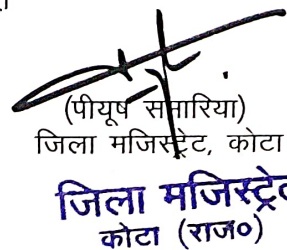 (पीयूष समारिया)
जिला मजिस्ट्रेट, कोटा
जिला मजिस्ट्रेट
कोटा (राज०)